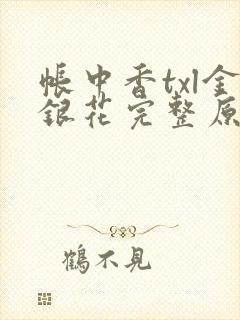 帳中香txl金
銀花完整原
鶴不見